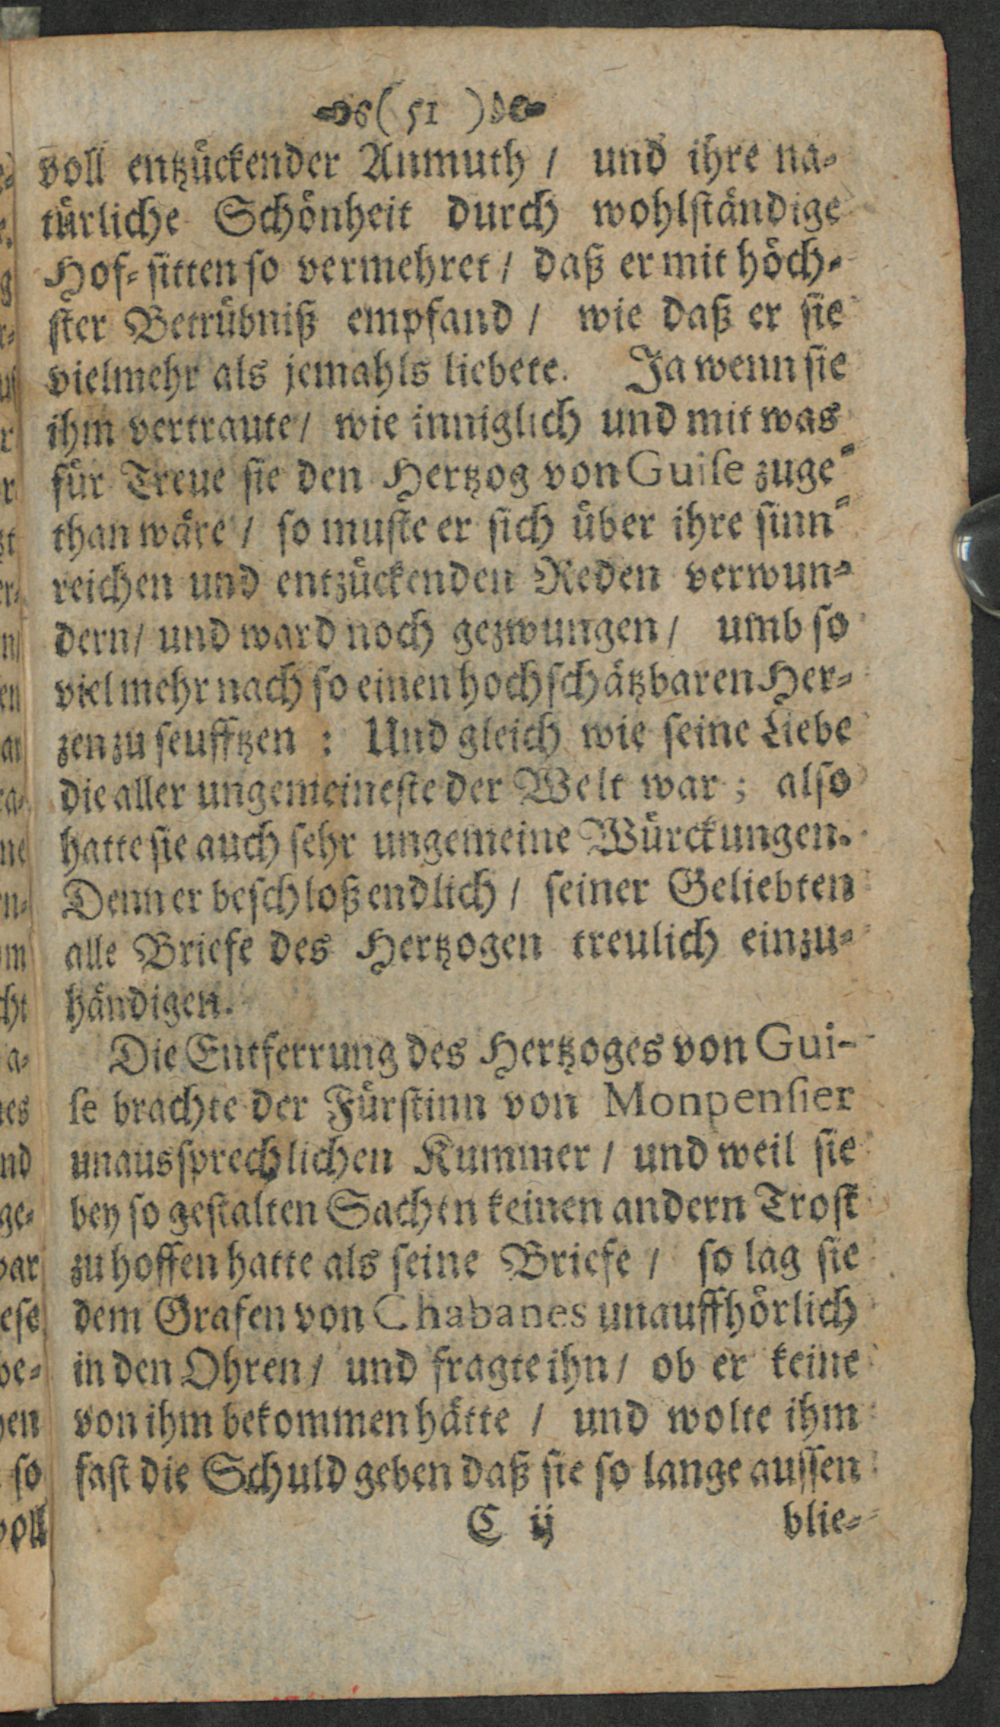 ( 51 )
voll entzückender Anmuth / und ihre na-
türliche Schönheit durch wohlständige
Hof-sitten so vermehret / daß er mit höch-
ster Betrübniß empfand / wie daß er sie
vielmehr als jemahls liebete. Ja wenn sie
ihm vertraute / wie inniglich und mit was
für Treue sie den Hertzog von Guise zuge-
than wäre / so muste er sich über ihre sinn-
reichen und entzückenden Reden verwun-
dern / und ward noch gezwungen / umb so
viel mehr nach so einen hochschätzbaren Her-
zen zu seufftzen : Und gleich wie seine Liebe
die aller ungemeineste der Welt war ; also
hatte sie auch sehr ungemeine Würckungen.
Denn er beschloß endlich / seiner Geliebten
alle Briefe des Hertzogen treulich einzu-
händigen.
Die Entferrung des Hertzoges von Gui-
se brachte der Fürstinn von Monpensier
unaussprechlichen Kummer / und weil sie
bey so gestalten Sachen keinen andern Trost
zu hoffen hatte als seine Briefe / so lag sie
dem Grafen von Chabanes unauffhörlich
in den Ohren / und fragte ihn / ob er keine
von ihm bekommen hätte / und wolte ihm
fast die Schuld geben daß sie so lange aussen
C ij blie-